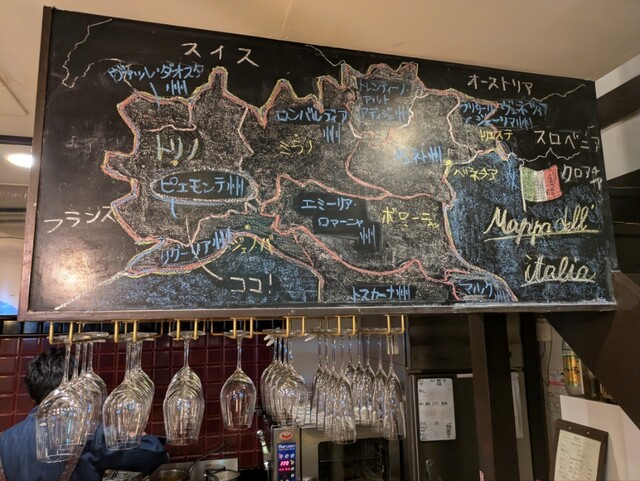 スイス
ヴァッレ・ダオスタ州
トリノ
ピエモンテ州
フランス
リグーリア州
ジェノバ
ココ!
ロンバルディア州
ミラノ
トレンティーノ
アルト
アディジェ州
エミーリア・
ロマーニャ州
ボローニャ
トスカーナ州
マルケ州
オーストリア
ヴェネツィア
ジューリア州
トリエステ
スロベニア
ベネチア
クロアチア
Mappa dell'
italia